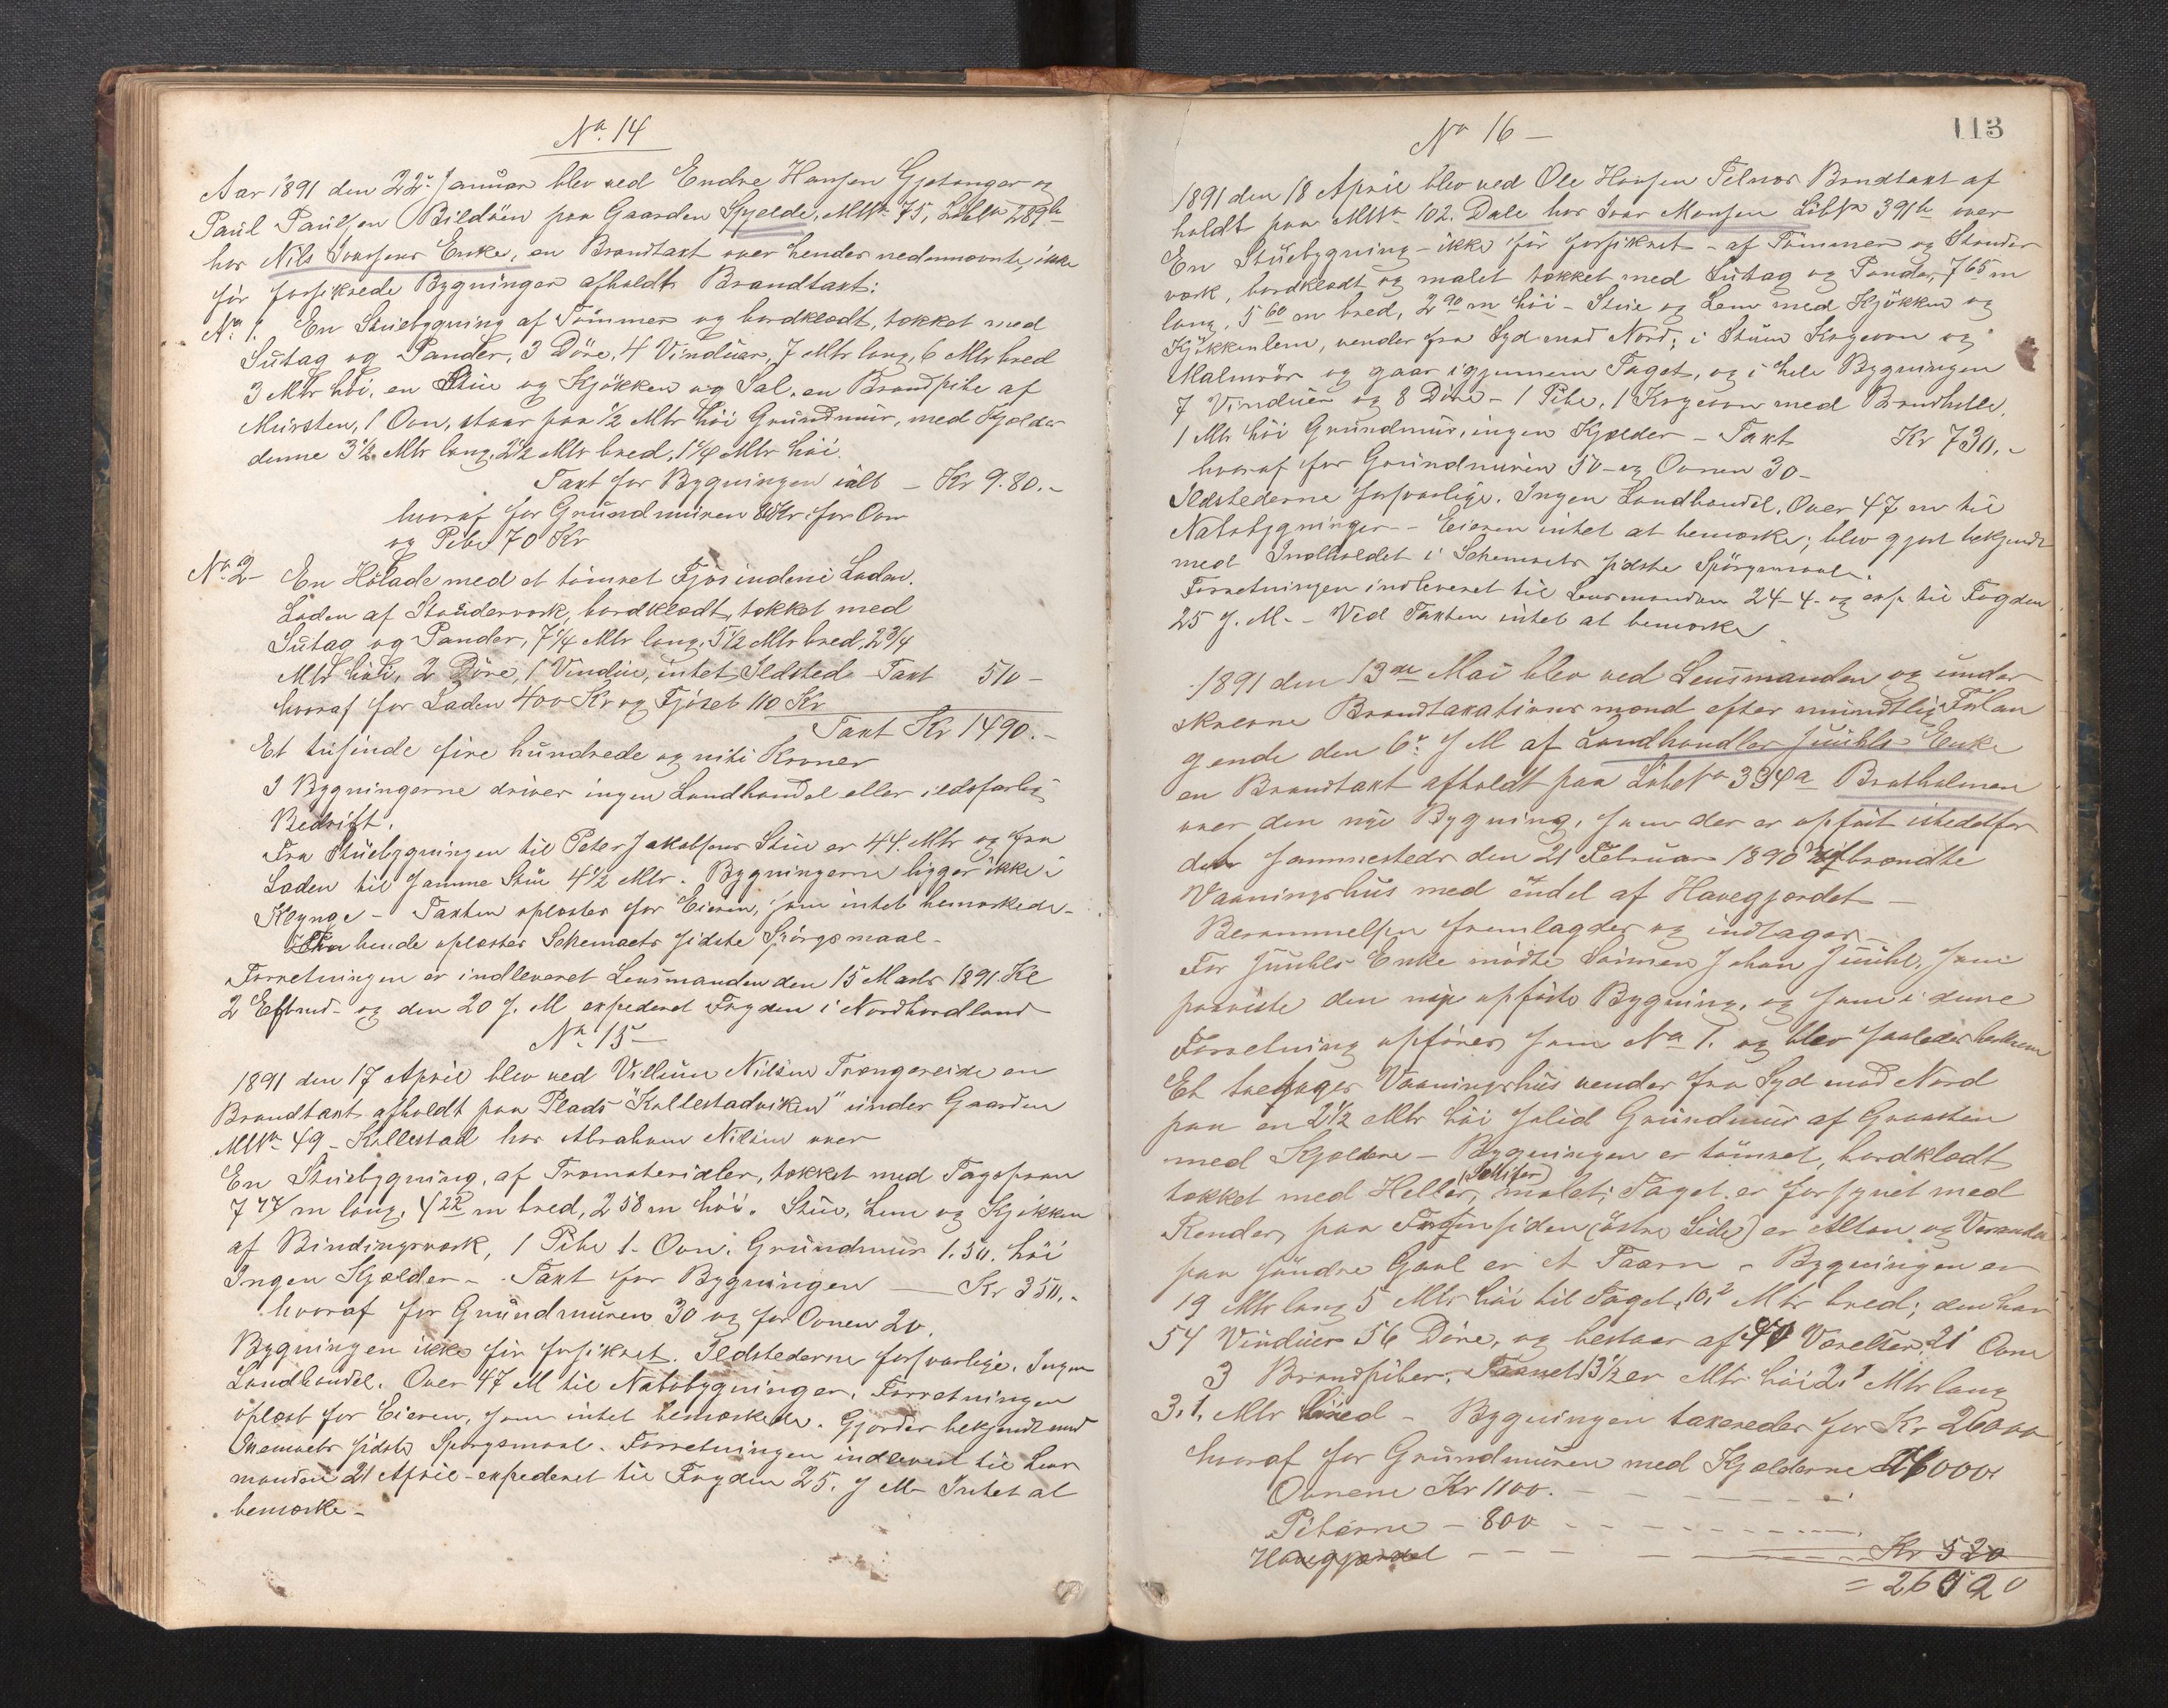 No. 14
Aar 1891 den 22de Januar blev ved Endre Hansen Gjetanger og
Paul Paulsen Bildöen paa Gaarden Spjelde, MNo 75, LöbNo 289b
hos Nils Ivarsens Enke, en Brandtaxt over hendes nedennævnte, ikke
för forsikrede Bygninger afholdt Brandtaxt:
No. 1. En Stuebygning af Tömmer og bordklædt, tækket med
Sutag og Pander, 3 Döre, 4 Vinduer, 7 Mtr lang, 6 Mtr bred
3 Mtr höi, en Stue og Kjökken og Sal, en Brandpibe af
Mursten, 1 Ovn, staar paa 1/2 Mtr höi Grundmur, med Kjelder
denne 3 1/2 Mtr lang, 2 1/2 Mtr bred, 1 1/4 Mtr höi.
Taxt for Bygningen ialt – Kr 980.–
hvoraf for Grundmuren Kr. for Ovn
og Pibe 70 Kr
No. 2 – En Hölade med et tömret Fjös inden i Laden.
Laden af Stauderværk, bordklædt, tækket med
Sutag og Pander, 7 1/4 Mtr lang, 5 1/2 Mtr bred, 2 3/4
Mtr höi, 2 Döre, 1 Vindue, intet Ildsted – Taxt 510 –
hvoraf for Laden 400 Kr og Fjöset 110 Kr
Taxt Kr 1490.–
Et tusinde fire hundrede og niti Kroner
I Bygningerne drives ingen Landhandel eller ildsfarlig
Bedrift.
Fra Stuebygningen til Peter Jakobsens Stue er 44. Mtr og fra
Laden til samme Stue 4 1/2 Mtr. Bygningerne ligger ikke i
Klynge – Taxten oplæstes for Eieren, som intet bemærkede –
hende oplæstes Schemaets sidste Spörgsmaal –
Forretningen er indleveret Lensmanden den 15 Marts 1891. Kl
2 Eftmd – og den 20 s. M. expederet Fogden i Nordhordland
No. 15 –
1891 den 17 April blev ved Villum Nilsen Trængereide en
Brandtaxt afholdt paa Plads "Kallestadviken" under Gaarden
MNo. 49 – Kallestad hos Abraham Nilsen over
En Stuebygning, af Træmaterialer, tækket med Tagspaan
7 77 m lang, 4 22 m bred, 2 58 m höi. Stue, Lem og Kjökken
af Bindingsværk, 1 Pibe 1 – Ovn. Grundmur 1.50. höi
Ingen Kjælder – Taxt for Bygningen — Kr 350.–
hvoraf for Grundmuren 30 og for Ovnen 20.
Bygningen ikke för forsikret. Ildstederne forsvarlige. Ingen
Landhandel. Over 47 M til Nabobygninger. Forretningen
oplæst for Eieren, som intet bemærkede. Gjordes bekjendt med
Skemaets sidste Spörgsmaal. Forretningen indleveret til Lens
manden 21 April – expederet til Fogden 25. s M – Intet at
bemærke –
No 16 –
113
1891 den 18 April blev ved Ole Hansen Telnæs Brandtaxt af
holdt paa MNo 102. Dale hos Ivar Monsen LöbNo 391b over
En Stuebygning – ikke för forsikret – af Tömmer og Stauder
værk, bordklædt og malet tækket med Sutag og Pander, 7 65 m
lang, 5 60 m bred, 2 90 m höi – Stue og Lem med Kjökken og
Kjökkenlem, vender fra Syd mod Nord; i Stuen Kogeovn og
Malmrör og gaar igjennem Taget, og i hele Bygningen
7 Vinduer og 8 Döre – 1 Pibe, 1 Kogeovn med Brandhelle,
1 Mtr höi Grundmur, ingen Kjælder – Taxt Kr 730.–
hvoraf for Grundmuren 50 – og Ovnen 30 –
Ildstederne forsvarlige. Ingen Landhandel. Over 47 m til
Nabobygninger – Eieren intet at bemærke; blev gjort bekjendt
med Indholdet i Schemaets sidste Spörgsmaal.
Forretningen indleveret til Lensmanden 24 – 4. og exp. til Fogden
25 s. M. – Ved Taxten intet at bemærke
1891 den 13de Mai blev ved Lensmanden og under
skrevne Brandtaxationsmænd efter mundtlig Forlan
gende den 6te s M af Landhandler Juuhls Enke
en Brandtaxt afholdt paa LöbeNo 334a Bratholmen
over den nye Bygning, som der er opfört istedetfor
det sammesteds den 21 Februar 1890 afbrændte
Vaaningshus med endel af Havegjærdet –
Berammelsen fremlagdes og indtages –
For Juuhls Enke mödte Sönnen Johan Juuhl, som
paaviste den nye opförte Bygning, og som i denne
Forretning opföres som No 1. og blev saaledes beskreven
Et toetages Vaaningshus vender fra Syd mod Nord
paa en 2 1/2 Mtr höi solid Grundmur af Graasten
med Kjeldere – Bygningen er tömret, bordklædt
tækket med Heller, (Skifer) malet; Taget er forsynet med
Render, paa Forsiden (östre Side) er Altan og Veranda
paa söndre Gavl er et Taarn – Bygningen er
19 Mtr lang 5 Mtr höi til Taget, 10,2 Mtr bred; den har
54 Vinduer 56 Döre, og bestaar af 40 Værelser, 21 Ovne
3 Brandpiber. Taarnet 13 1/2 er Mtr höi 2,1 Mtr lang
3,1, Mtr bred – Bygningen taxeredes for Kr 26000
hvoraf for Grundmuren med Kjelderne 6000
Ovnene Kr 1100. – – – – –
Piberne – 800 – – – – –
Havegjærdet – – – – – Kr 520
= 26520